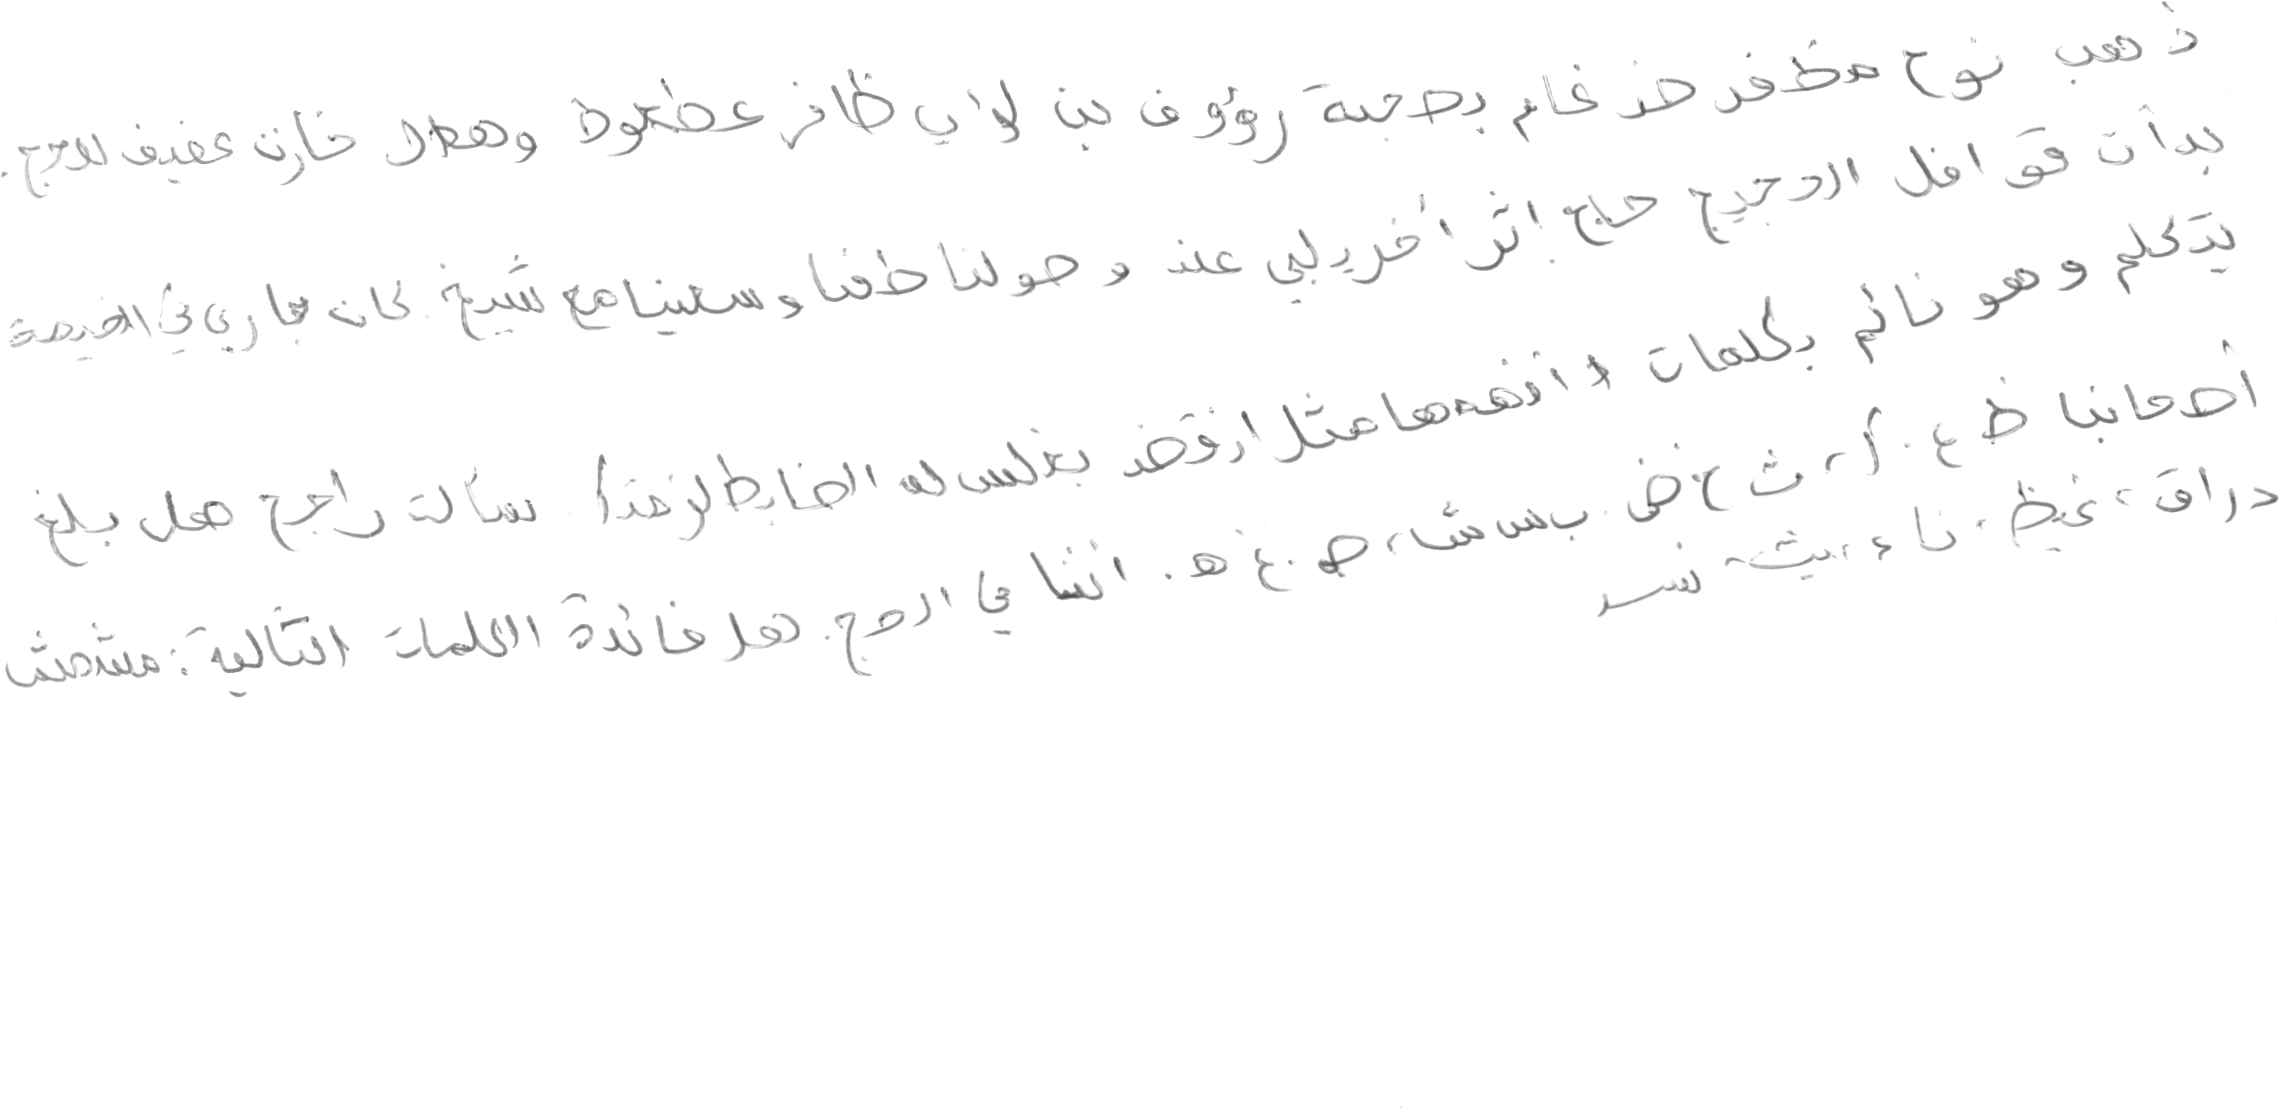 ذهب نوح مظفر ضرغام بصحبة رؤوف بن لؤي ظافر عطعوط وهلال خازن عفيف للحج.
بدأت قوافل الحجيج حاج إثر أخر يلبي عند وصولنا طفنا وسعينا مع شيخ. كان جاري في الخيمة
يتكلم وهو نائم بكلمات لا أفهمها مثل ارفض بغلس له الضابط لإغذا. سألت راجح هل بلغ
أصحابنا ظ ع. أ، ث خ ض. ب س ش، ص. غ ه. اننا في الحج. هل فائدة الكلمات التالية: مشمش
دراق، غيظ، ناء، يث، نسر